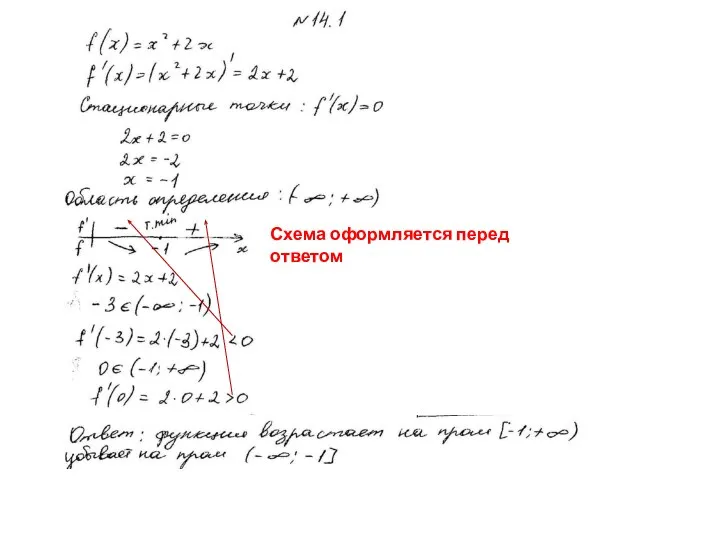 №14.1
f(x) = x² + 2x
f'(x) = (x² + 2x)' = 2x + 2
Стационарные точки : f'(x) = 0
2x + 2 = 0
2x = -2
x = -1
Область определения : (-∞; +∞)
f' - т.min +
f -1 x
Схема оформляется перед
ответом
f'(x) = 2x + 2
-3 ∈ (-∞; -1)
f'(-3) = 2·(-3)+2 < 0
0 ∈ (-1; +∞)
f'(0) = 2·0+2 > 0
Ответ: функция возрастает на пром [-1; +∞)
убывает на пром (-∞; -1]